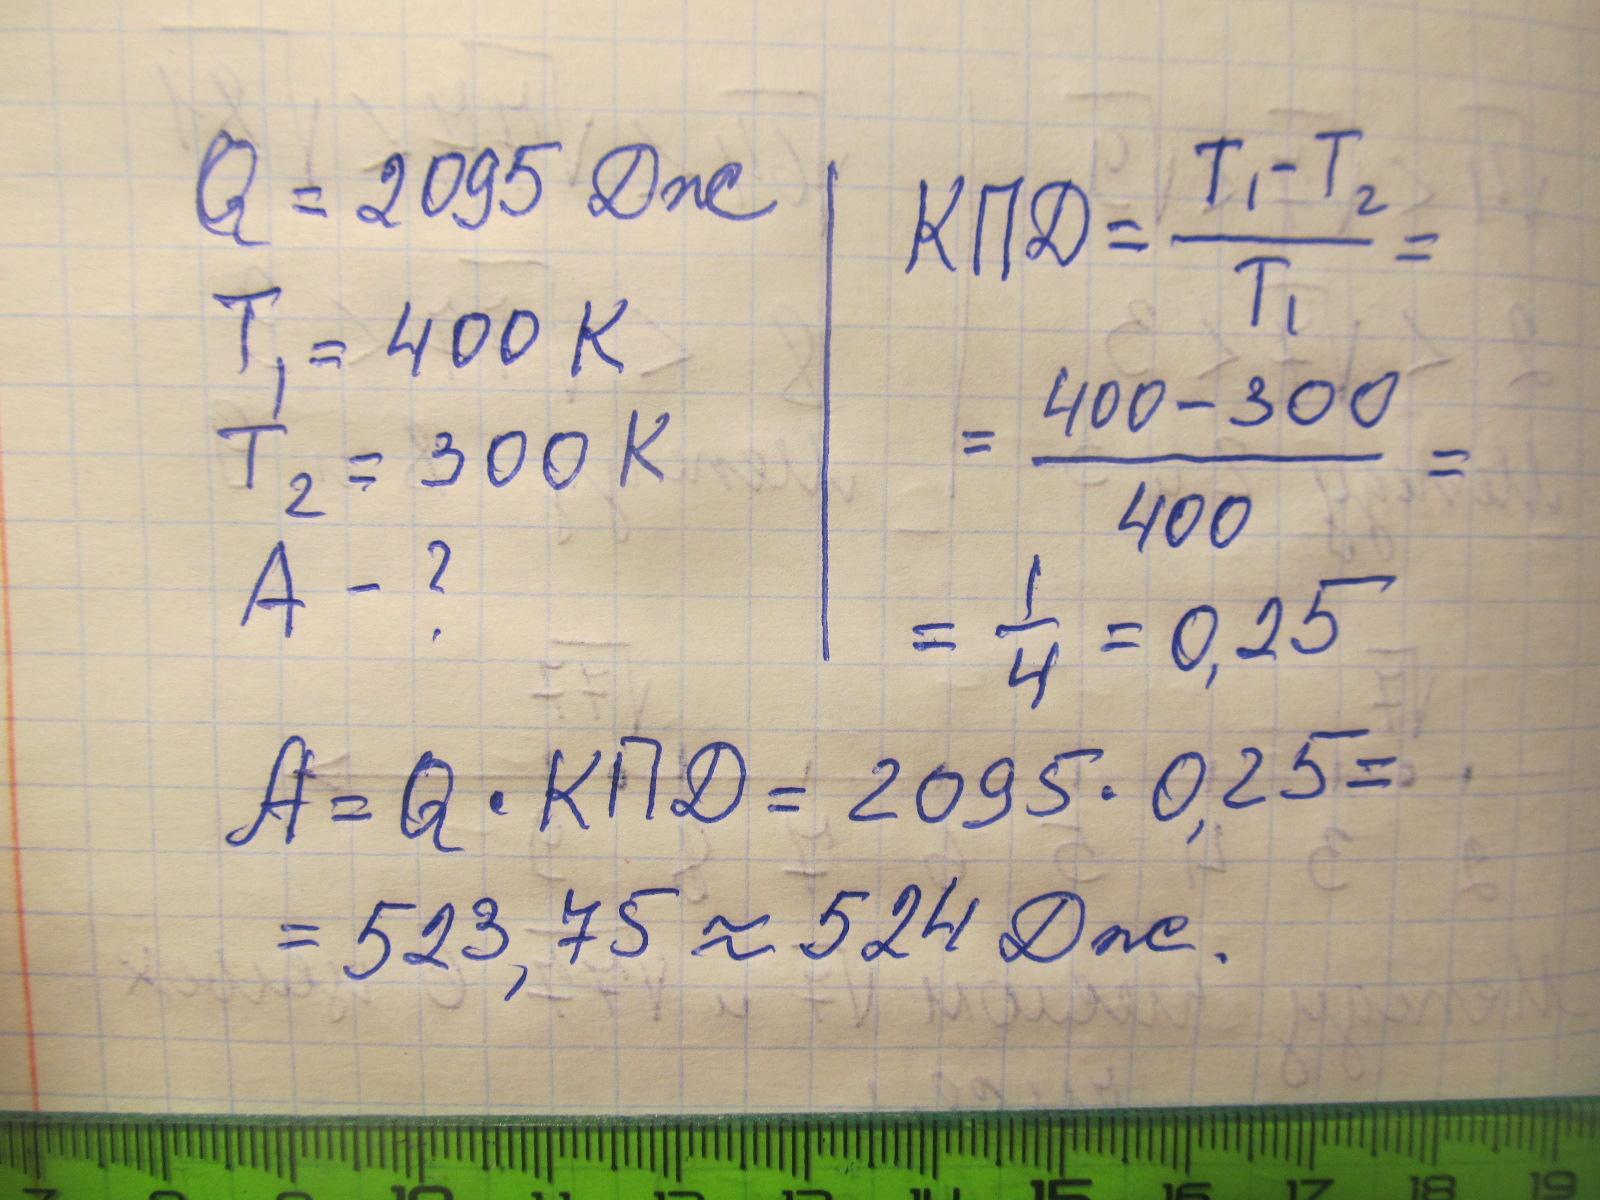 Q = 2095 Дж
T₁ = 400 К
T₂ = 300 К
A - ?
КПД = (T₁ - T₂) / T₁ =
= (400 - 300) / 400 =
= 1/4 = 0,25
A = Q · КПД = 2095 · 0,25 =
= 523,75 ≈ 524 Дж.
10 11 12 13 14 15 16 17 18 19